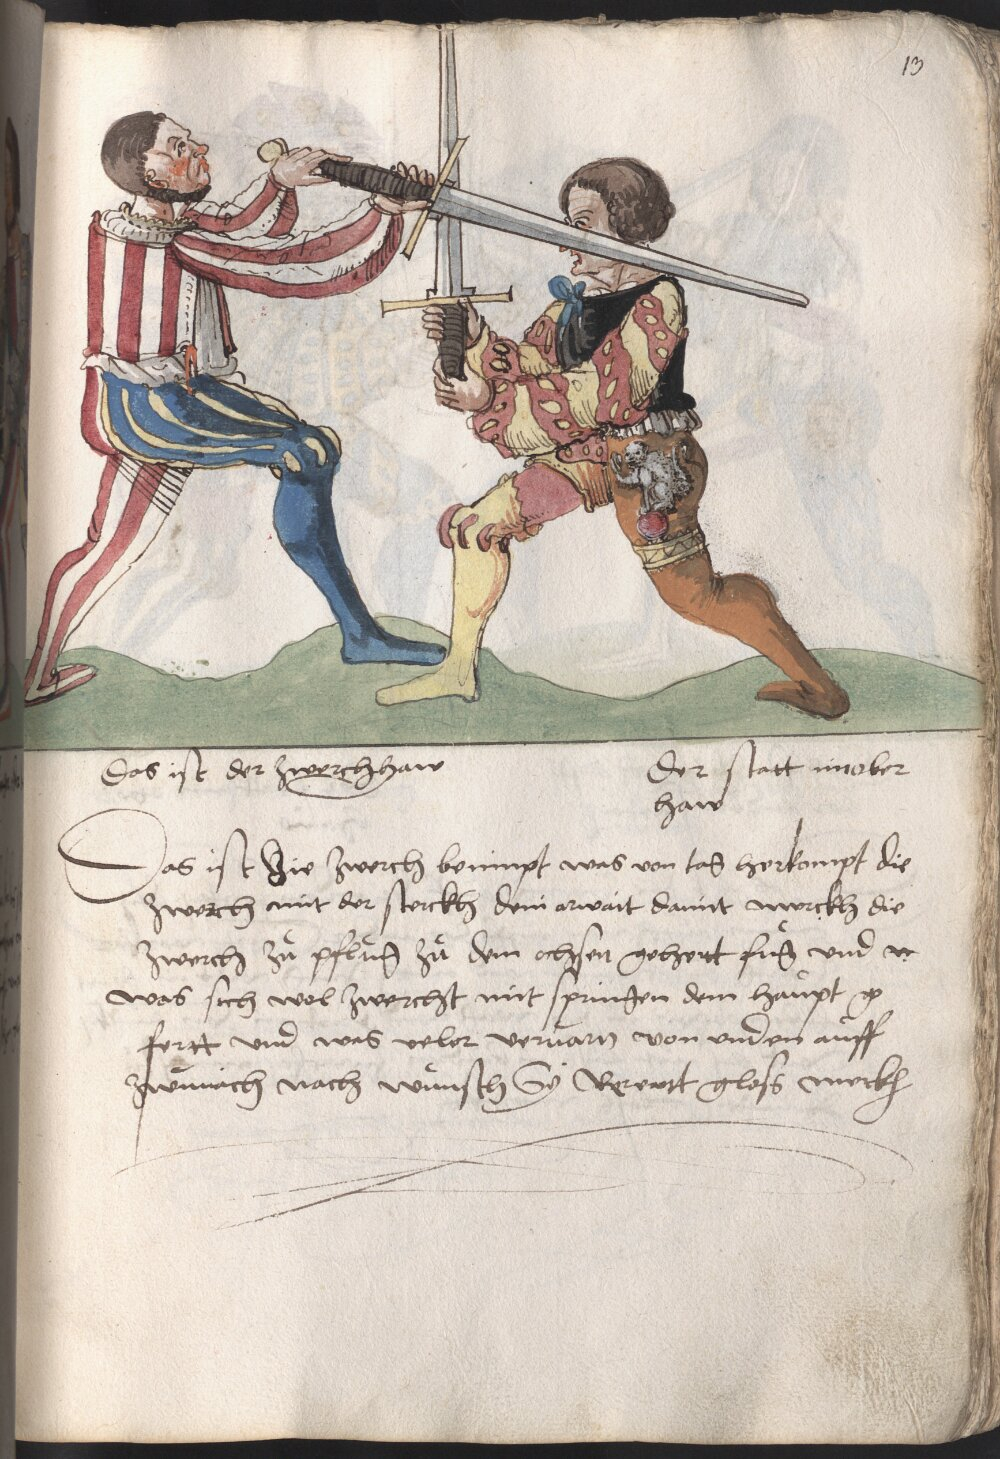 13
Das ist der Zwerchhaw
Der statt im ober
haw
Das ist Die Zwerch benimpt was von tag herkompt die
Zwerch mit der sterckh dein arwait damit merckh die
Zwerch zů pflůg zů dem ochsen gehertt fůg und
was sich wol Zwercht mit springen dem haupt
fertt und was veler verfürn von unden auff
nach wunsch Sy Verertt gloss merckh